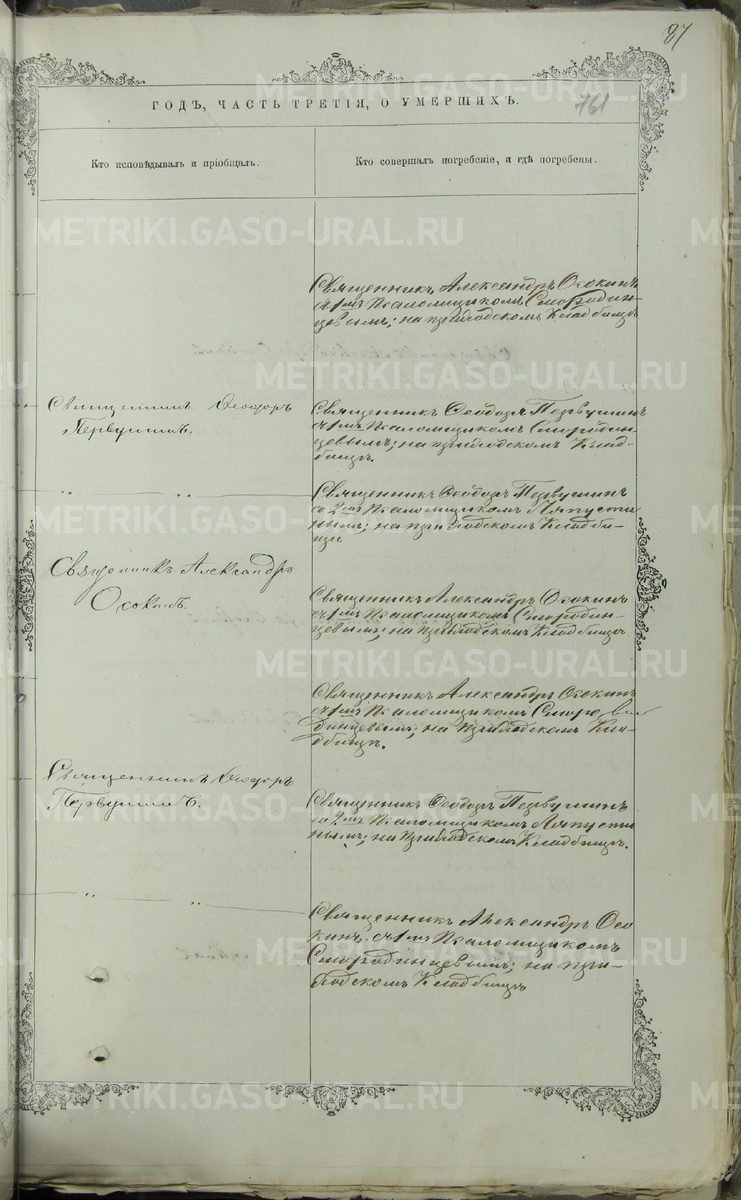 87
ГОДЪ, ЧАСТЬ ТРЕТІЯ, О УМЕРШИХЪ.
761
Кто исповѣдывалъ и пріобщалъ.
Кто совершалъ погребеніе, и гдѣ погребены.
Священникъ Александръ Ососкинъ
съ 1мъ Псаломщикомъ Смородин-
цевымъ; на приходскомъ кладбищѣ
Священникъ Ѳеодоръ
Первушинъ.
Священникъ Ѳеодоръ Первушинъ
съ 1мъ Псаломщикомъ Смородин-
цевымъ; на приходскомъ клад-
бищѣ.
" "
Священникъ Ѳеодоръ Первушинъ
со 2мъ Псаломщикомъ Ляпусти
нымъ; на приходскомъ кладби-
щѣ
Священникъ Александръ
Осокинъ.
Священникъ Александръ Осокинъ
съ 1мъ Псаломщикомъ Смородин-
цевымъ; на приходскомъ кладбищѣ
Священникъ Александръ Осокинъ
съ 1мъ Псаломщикомъ Сморо
динцевымъ; на приходскомъ кла-
дбищѣ.
Священникъ Ѳеодоръ
Первушинъ.
Священникъ Ѳеодоръ Первушинъ
со 2мъ Псаломщикомъ Ляпусти
нымъ; на приходскомъ кладбищѣ.
" "
Священникъ Александръ Осо
кинъ съ 1мъ Псаломщикомъ
Смородинцевымъ; на при-
ходскомъ кладбищѣ
METRIKI.GASO-URAL.RU